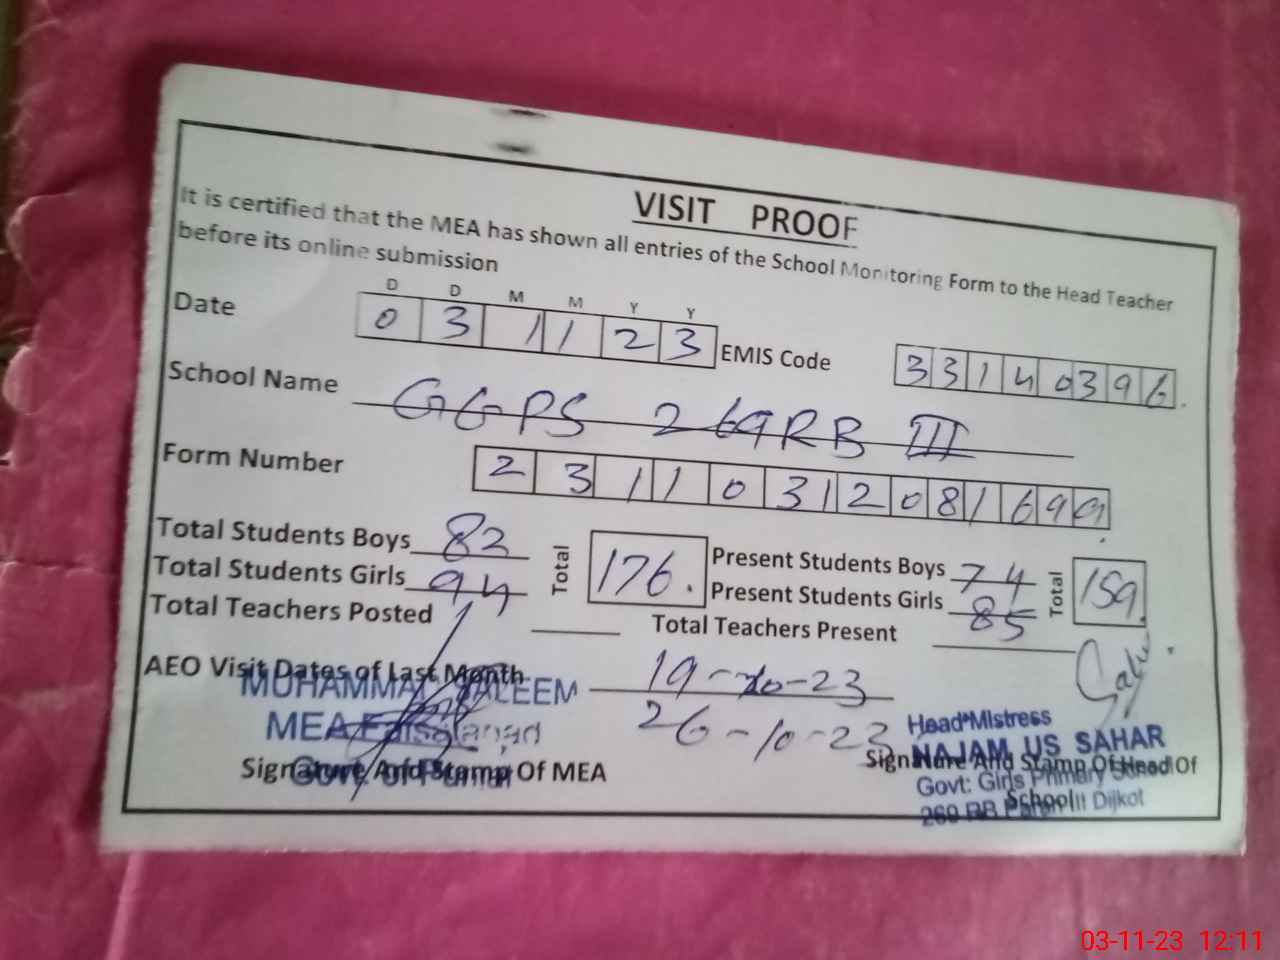 VISIT PROOF
It is certified that the MEA has shown all entries of the School Monitoring Form to the Head Teacher
before its online submission
D D M M Y Y
Date 0 3 1 1 2 3 EMIS Code 3 3 1 4 0 3 9 6
School Name GGPS 269RB III
Form Number 2 3 1 1 0 3 1 2 0 8 1 6 9
Total Students Boys 82 Total 176. Present Students Boys 74 Total 159
Total Students Girls 94 Present Students Girls 85
Total Teachers Posted Total Teachers Present
AEO Visit Dates of Last Month 19-10-23
26-10-23
MUHAMMAD SALEEM
MEA Faisalabad
Signature And Stamp Of MEA
Head Mistress
NAJAM US SAHAR
Signature And Stamp Of Head Of
School
Govt: Girls Primary School
269 RB III Dijkot
03-11-23 12:11